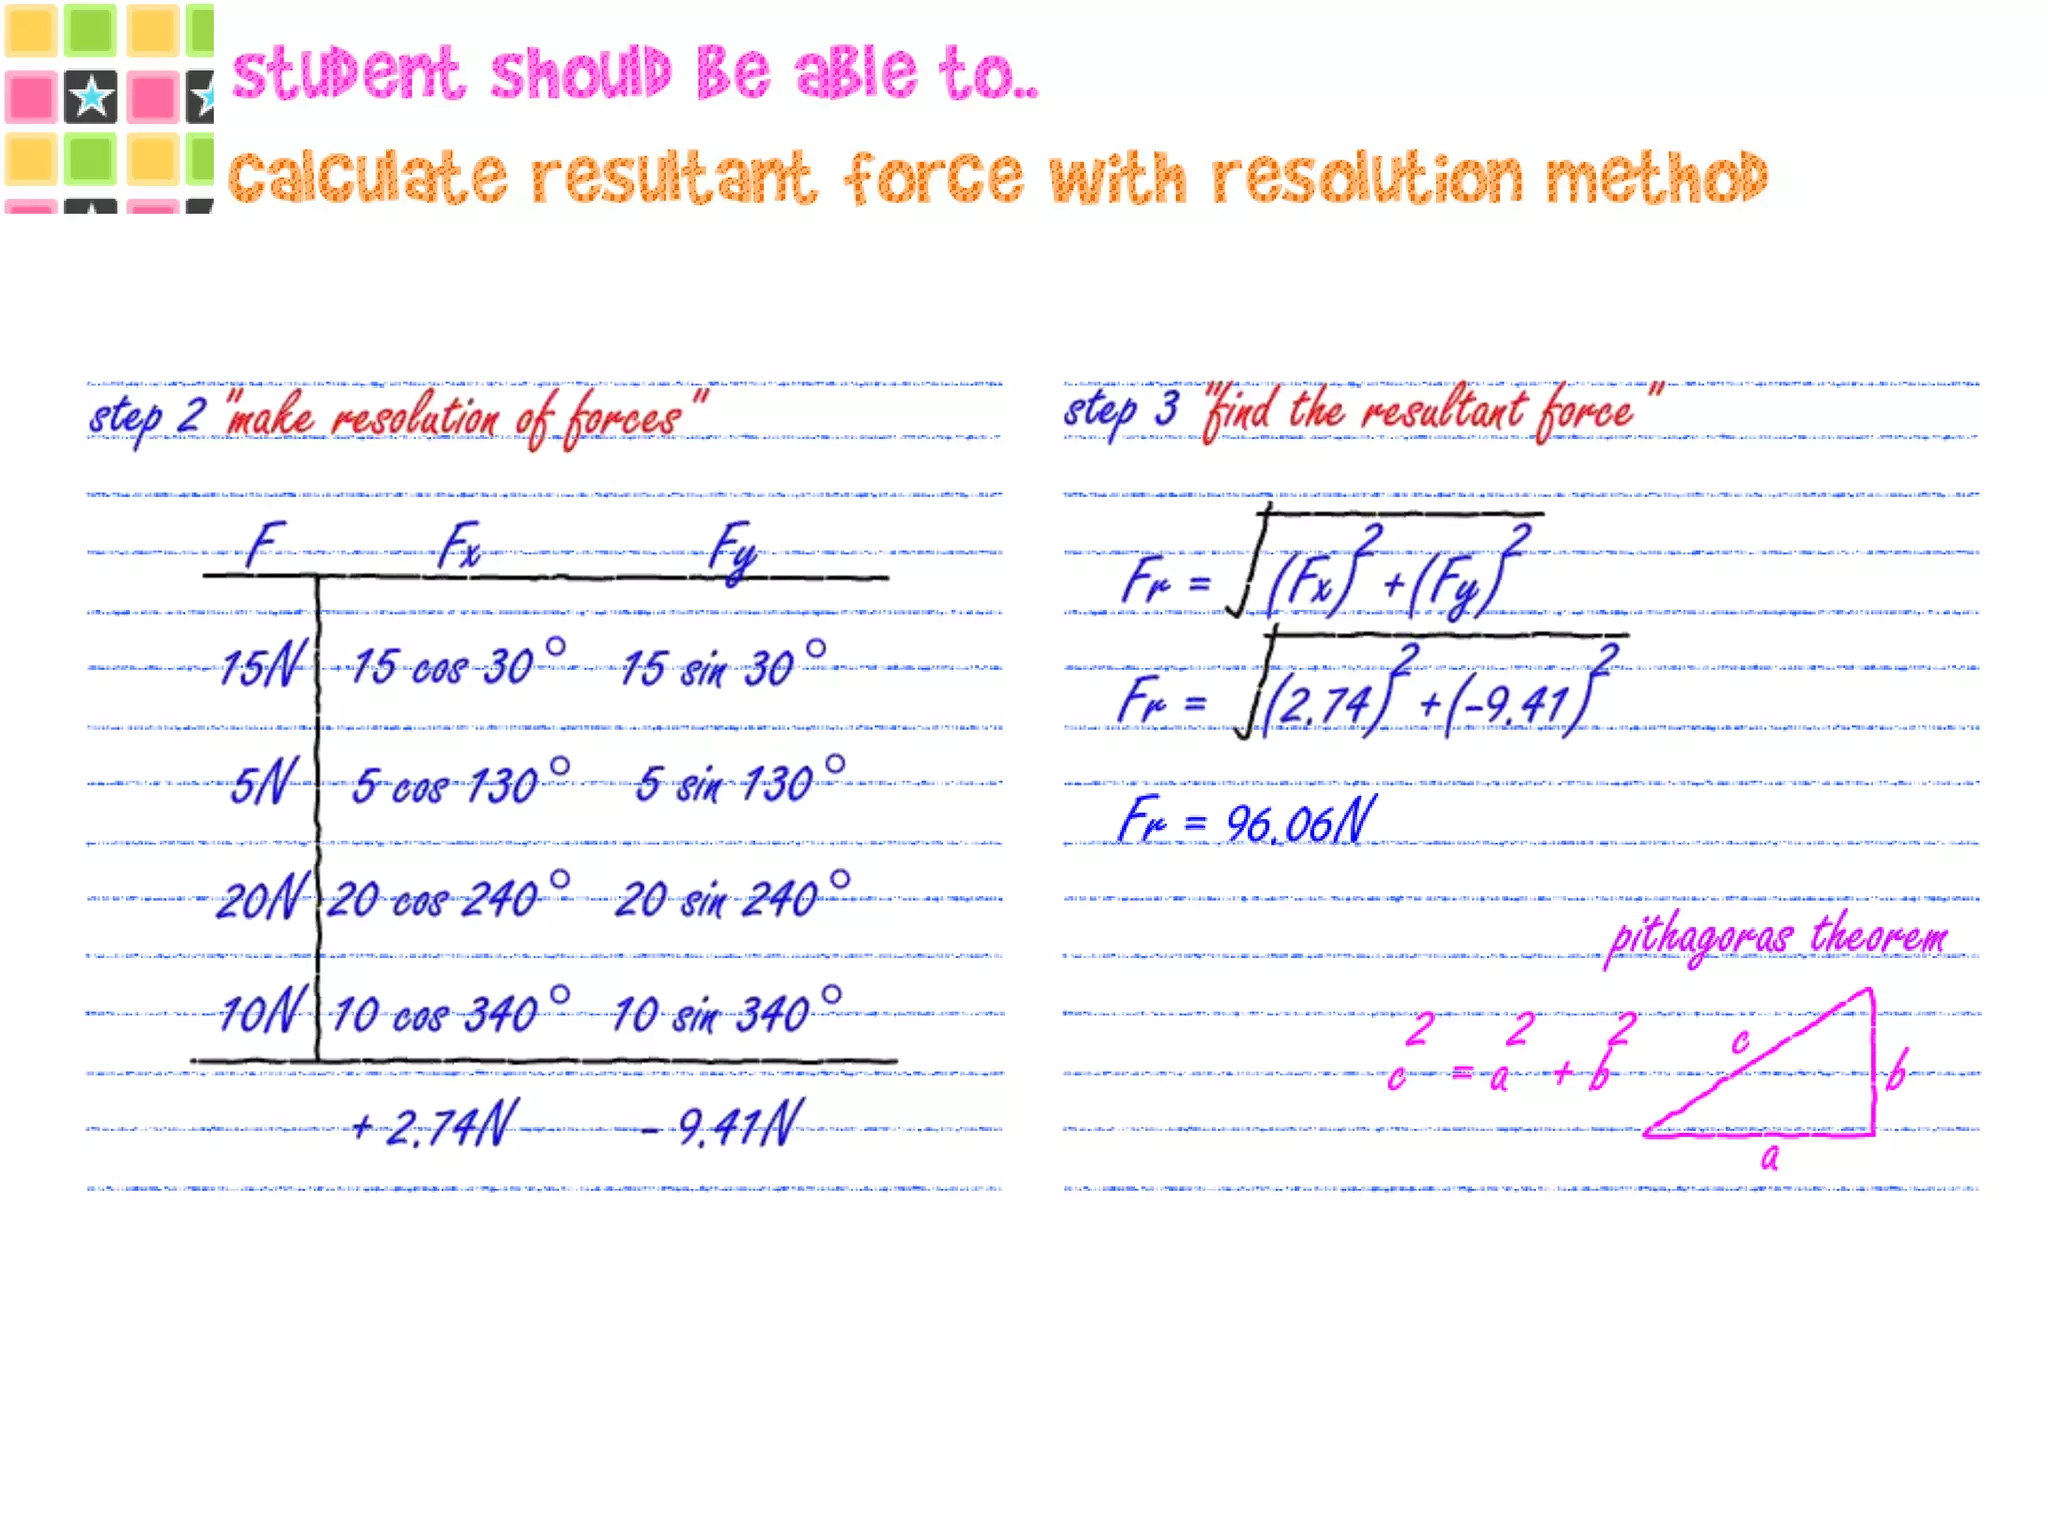 student should be able to..
calculate resultant force with resolution method
step 2 "make resolution of forces"
F Fx Fy
15N 15 cos 30° 15 sin 30°
5N 5 cos 130° 5 sin 130°
20N 20 cos 240° 20 sin 240°
10N 10 cos 340° 10 sin 340°
+ 2.74N - 9.41N
step 3 "find the resultant force"
Fr = √(Fx)² + (Fy)²
Fr = √(2.74)² + (-9.41)²
Fr = 96.06N
pithagoras theorem
c² = a² + b²
c
b
a